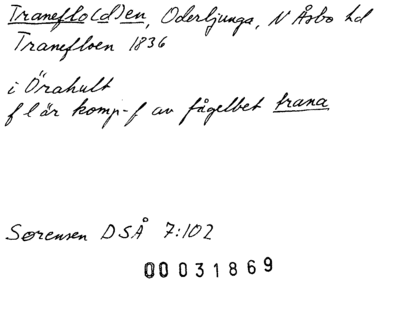 Traneflo(d)en, Oderljunga, N Åsbo hd
Tranefloen 1836
i Örahult
f l är komp-f av fågelbet trana
Sørensen DSÅ 7:102
00031869